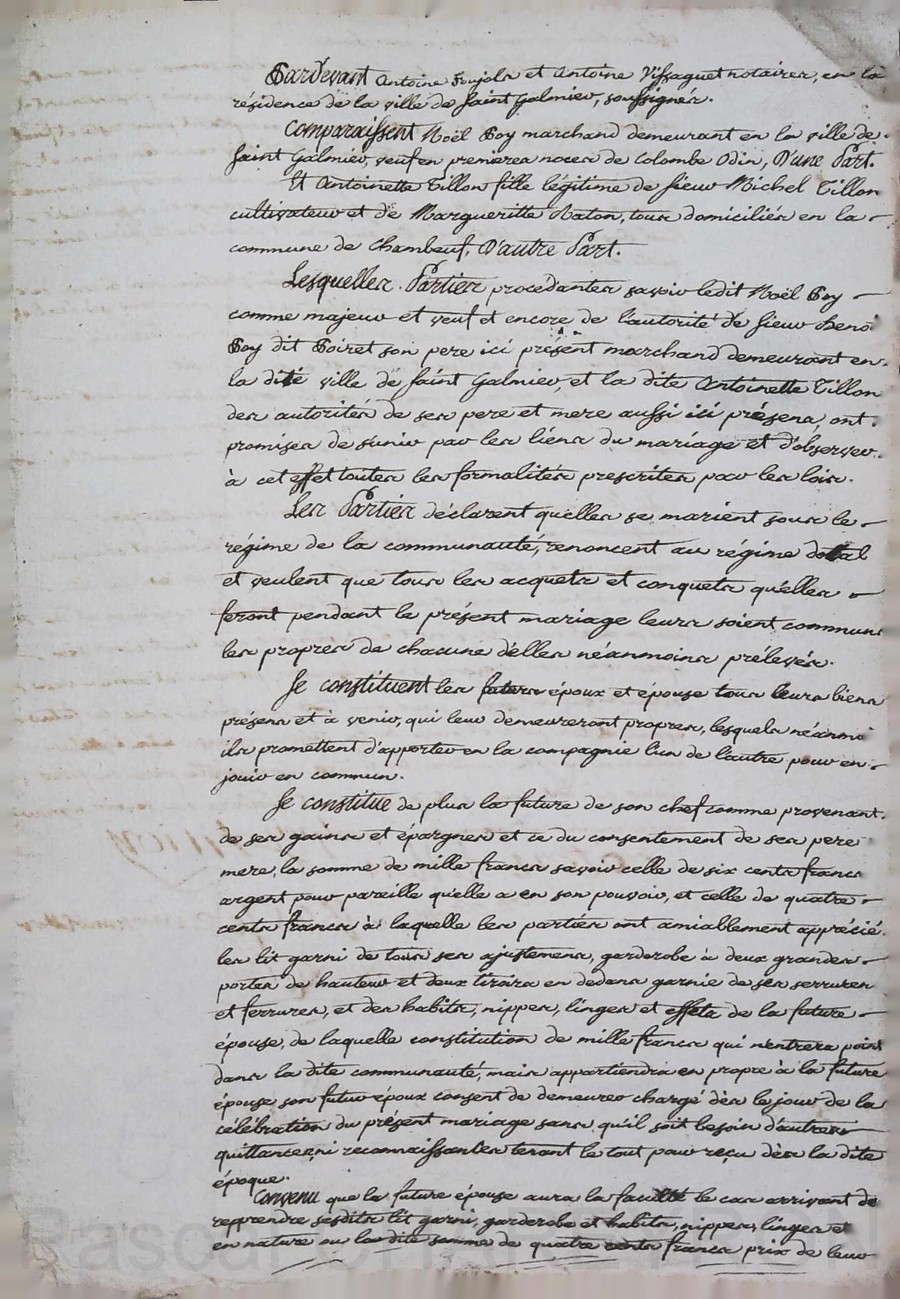 Pardevant Antoine Soujola et Antoine Vissaguet notaires, en la
résidence de la ville de Saint Galmier, soussignés.
Comparaissent Noël Poy marchand demeurant en la ville de
Saint Galmier, veuf en premieres noces de Colombe Odin, D'une Part.
Et Antoinette Tillon fille légitime de Sieur Michel Tillon
cultivateur et de Margueritte Naton, tous domiciliés en la
commune de Chambeuf, D'autre Part.
Lesquelles Parties procedantes savoir ledit Noël Poy
comme majeur et veuf et encore de l'autorité de Sieur Benoi
Poy dit Poiret son pere ici présent marchand demeurant en
la dite ville de Saint Galmier, et la dite Antoinette Tillon
des autorités de ses pere et mere aussi ici présens, ont
promises de s'unir par les liens du mariage et d'observer
à cet effet toutes les formalités prescrites par les lois.
Les Parties déclarent qu'elles se marient sous le
régime de la communauté, renoncent au régime dotal
et veulent que tous les acquets et conquets qu'elles
feront pendant le présent mariage leurs soient communs
les propres de chacune d'elles néanmoins prélevés.
Se constituent les futurs époux et épouse tous leurs biens
présens et à venir, qui leur demeureront propres, lesquels néanmo
ils promettent d'apporter en la compagnie l'un de l'autre pour en
jouir en commun.
Se constitue de plus la future de son chef comme provenant
de ses gains et épargnes et ce du consentement de ses pere
mere, la somme de mille francs savoir celle de six cents francs
argent pour pareille qu'elle a en son pouvoir, et celle de quatre
cents francs à laquelle les parties ont amiablement apprécié
les lit garni de tous ses ajustemens, garderobe à deux grandes
portes de hauteur et deux tiroirs en dedans garnie de ses serrures
et ferrures, et des habits, nippes, linges et effets de la future
épouse, de laquelle constitution de mille francs qui n'entrera point
dans la dite communauté, mais appartiendra en propre à la future
épouse son futur époux consent de demeurer chargé dès le jour de la
célébration du présent mariage sans qu'il soit besoin d'autres
quittances, ni reconnaissances tenant le tout pour reçu dès la dite
époque.
Convenu que la future épouse aura la faculté le cas arrivant de
reprendre sesdits lit garni, garderobe et habits, nippes, linges et
en nature ou la dite somme de quatre cents francs prix de leur